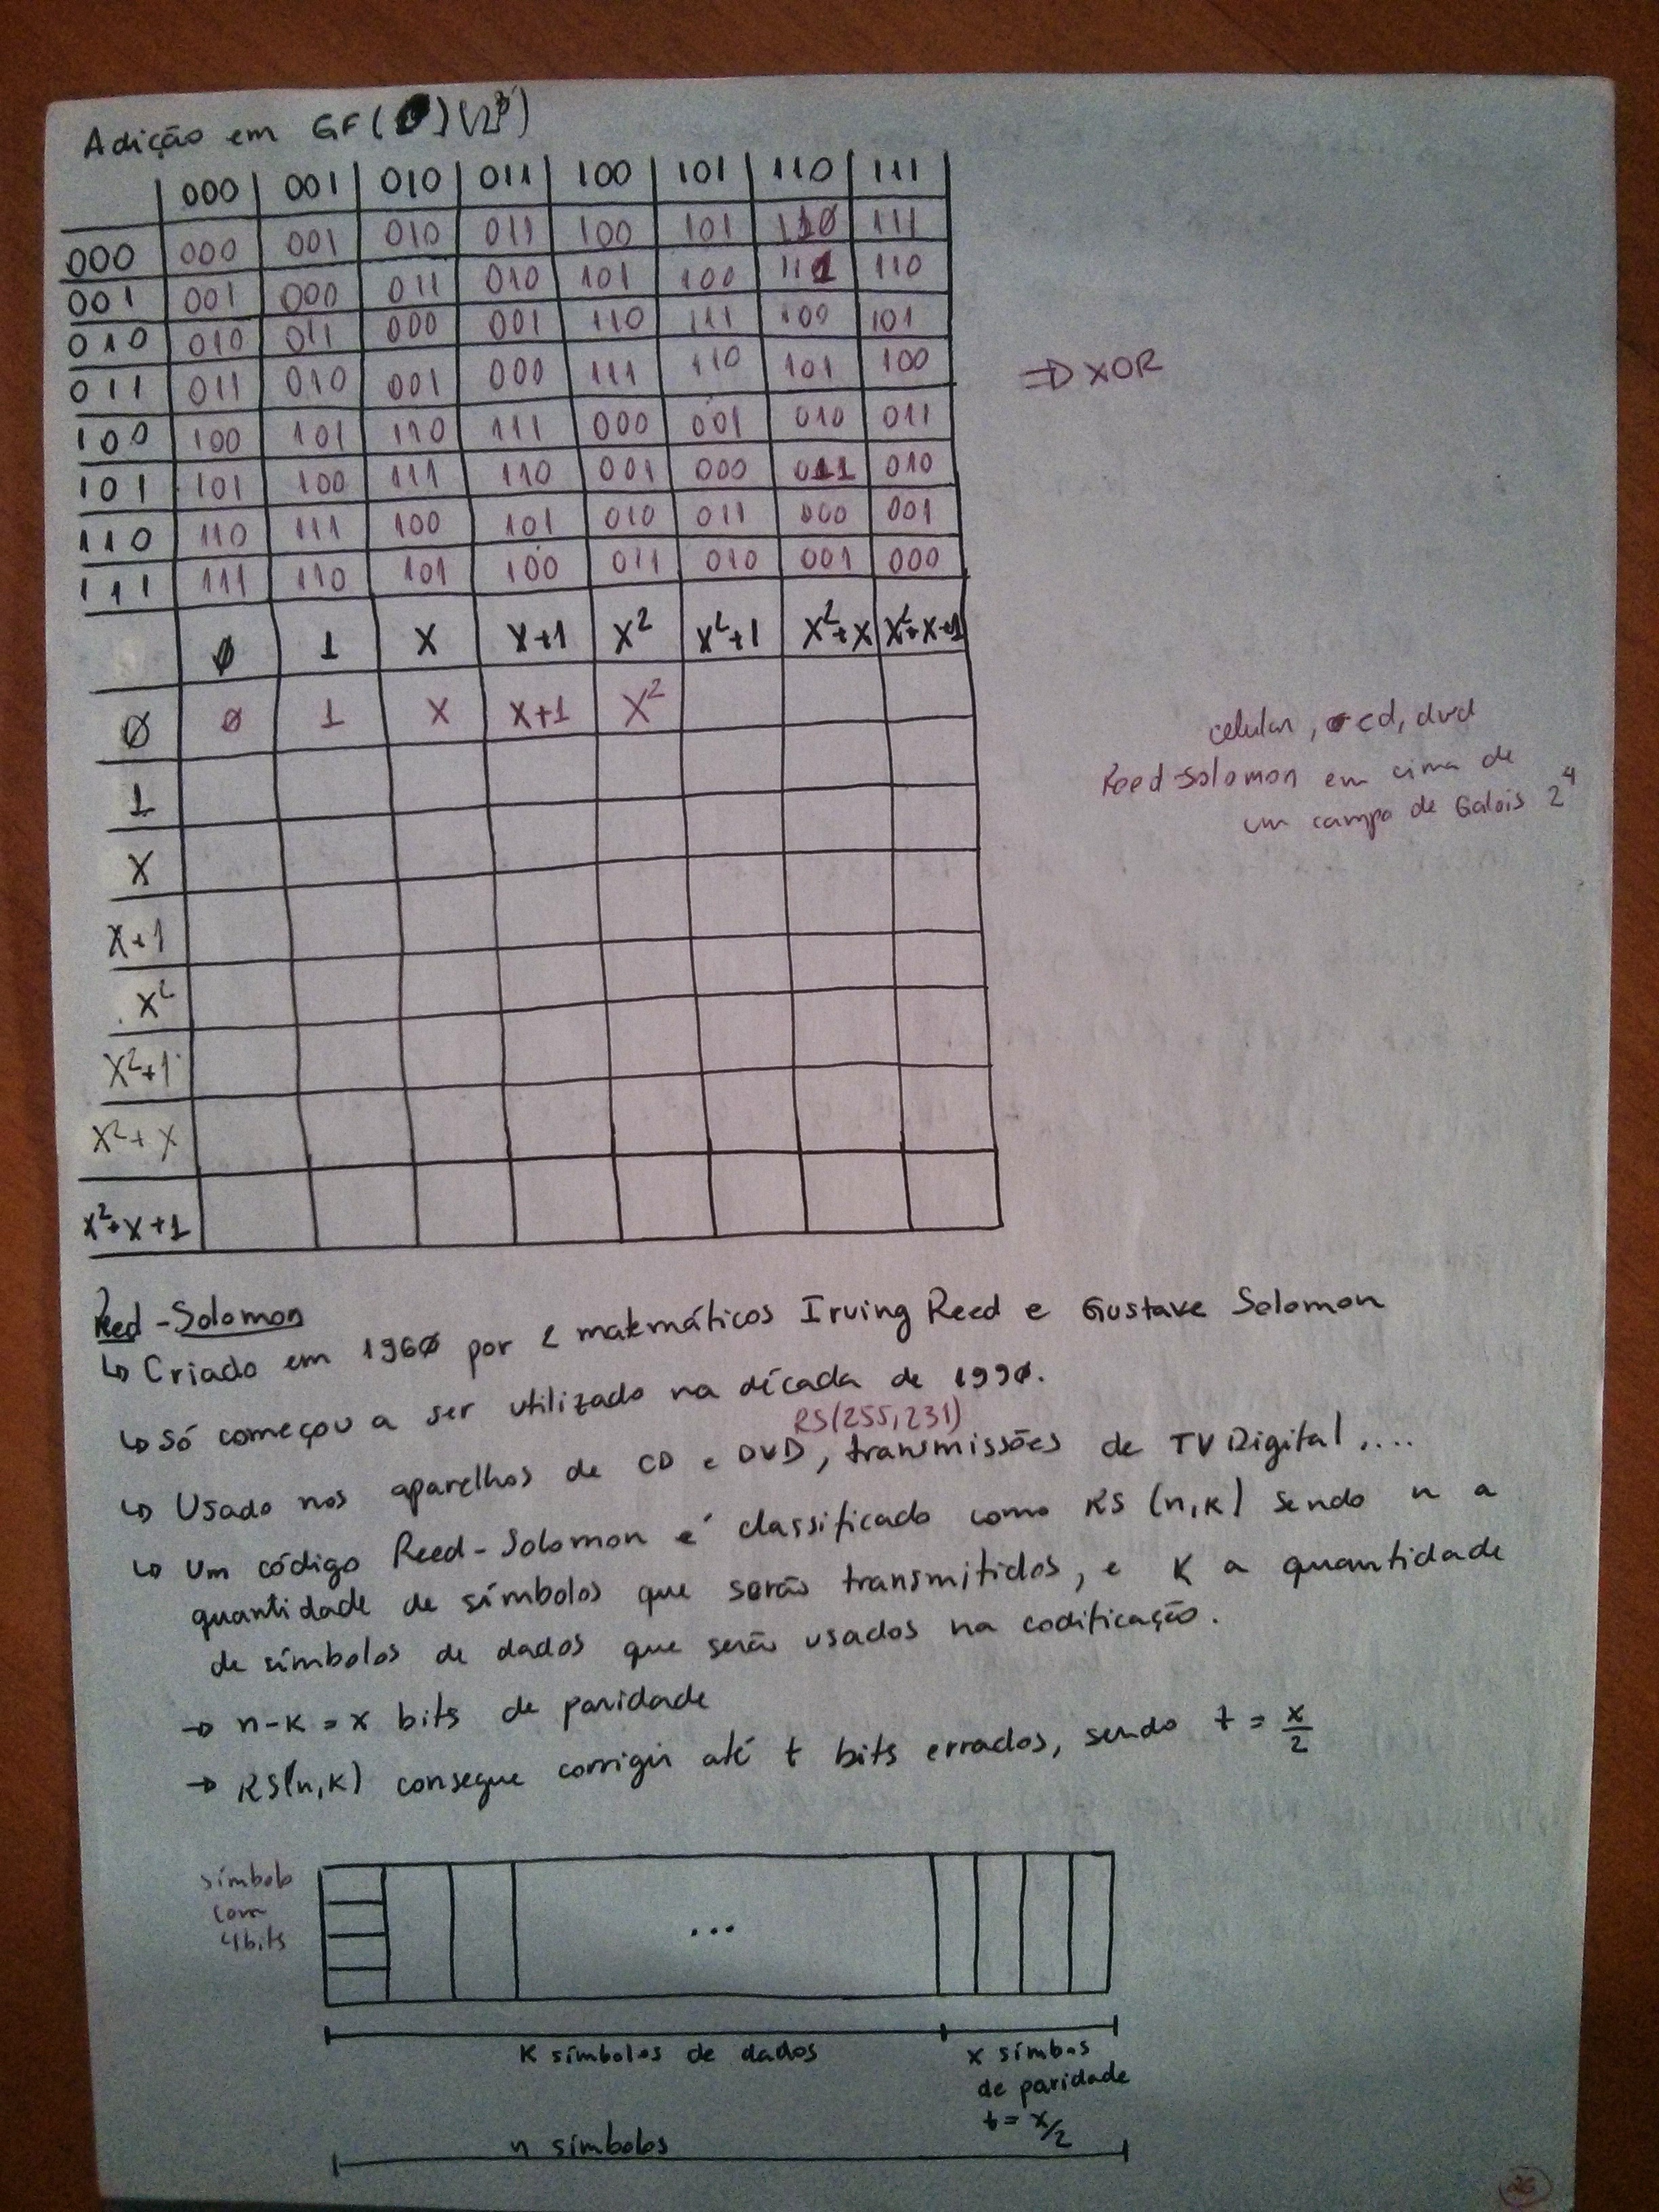 Adição em GF( ) (2³)
000 | 001 | 010 | 011 | 100 | 101 | 110 | 111
000 | 000 | 001 | 010 | 011 | 100 | 101 | 110 | 111
001 | 001 | 000 | 011 | 010 | 101 | 100 | 111 | 110
010 | 010 | 011 | 000 | 001 | 110 | 111 | 100 | 101
011 | 011 | 010 | 001 | 000 | 111 | 110 | 101 | 100
⇒ XOR
100 | 100 | 101 | 110 | 111 | 000 | 001 | 010 | 011
101 | 101 | 100 | 111 | 110 | 001 | 000 | 011 | 010
110 | 110 | 111 | 100 | 101 | 010 | 011 | 000 | 001
111 | 111 | 110 | 101 | 100 | 011 | 010 | 001 | 000
Ø | 1 | X | X+1 | X² | X²+1 | X²+X | X²+X+1
Ø | Ø | 1 | X | X+1 | X²
1
X
X+1
X²
X²+1
X²+X
X²+X+1
celular, cd, dvd
Reed-Solomon em cima de
um campo de Galois 2⁴
Reed-Solomon
↳ Criado em 196Ø por 2 matemáticos Irving Reed e Gustave Solomon
↳ Só começou a ser utilizado na década de 199Ø.
RS(255,231)
↳ Usado nos aparelhos de CD e DVD, transmissões de TV Digital,...
↳ Um código Reed-Solomon é classificado como RS (n,K) sendo n a
quantidade de símbolos que serão transmitidos, e K a quantidade
de símbolos de dados que serão usados na codificação.
→ n-K = x bits de paridade
→ RS(n,K) consegue corrigir até t bits errados, sendo t = x/2
símbolo
com
4bits
...
K símbolos de dados
x símbos
de paridade
t = x/2
n símbolos
26